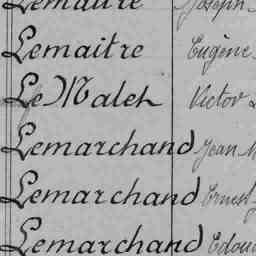 Lemaitre Joseph
Lemaitre Eugène
Le Maleh Victor
Lemarchand Jean
Lemarchand Ernest
Lemarchand Edou